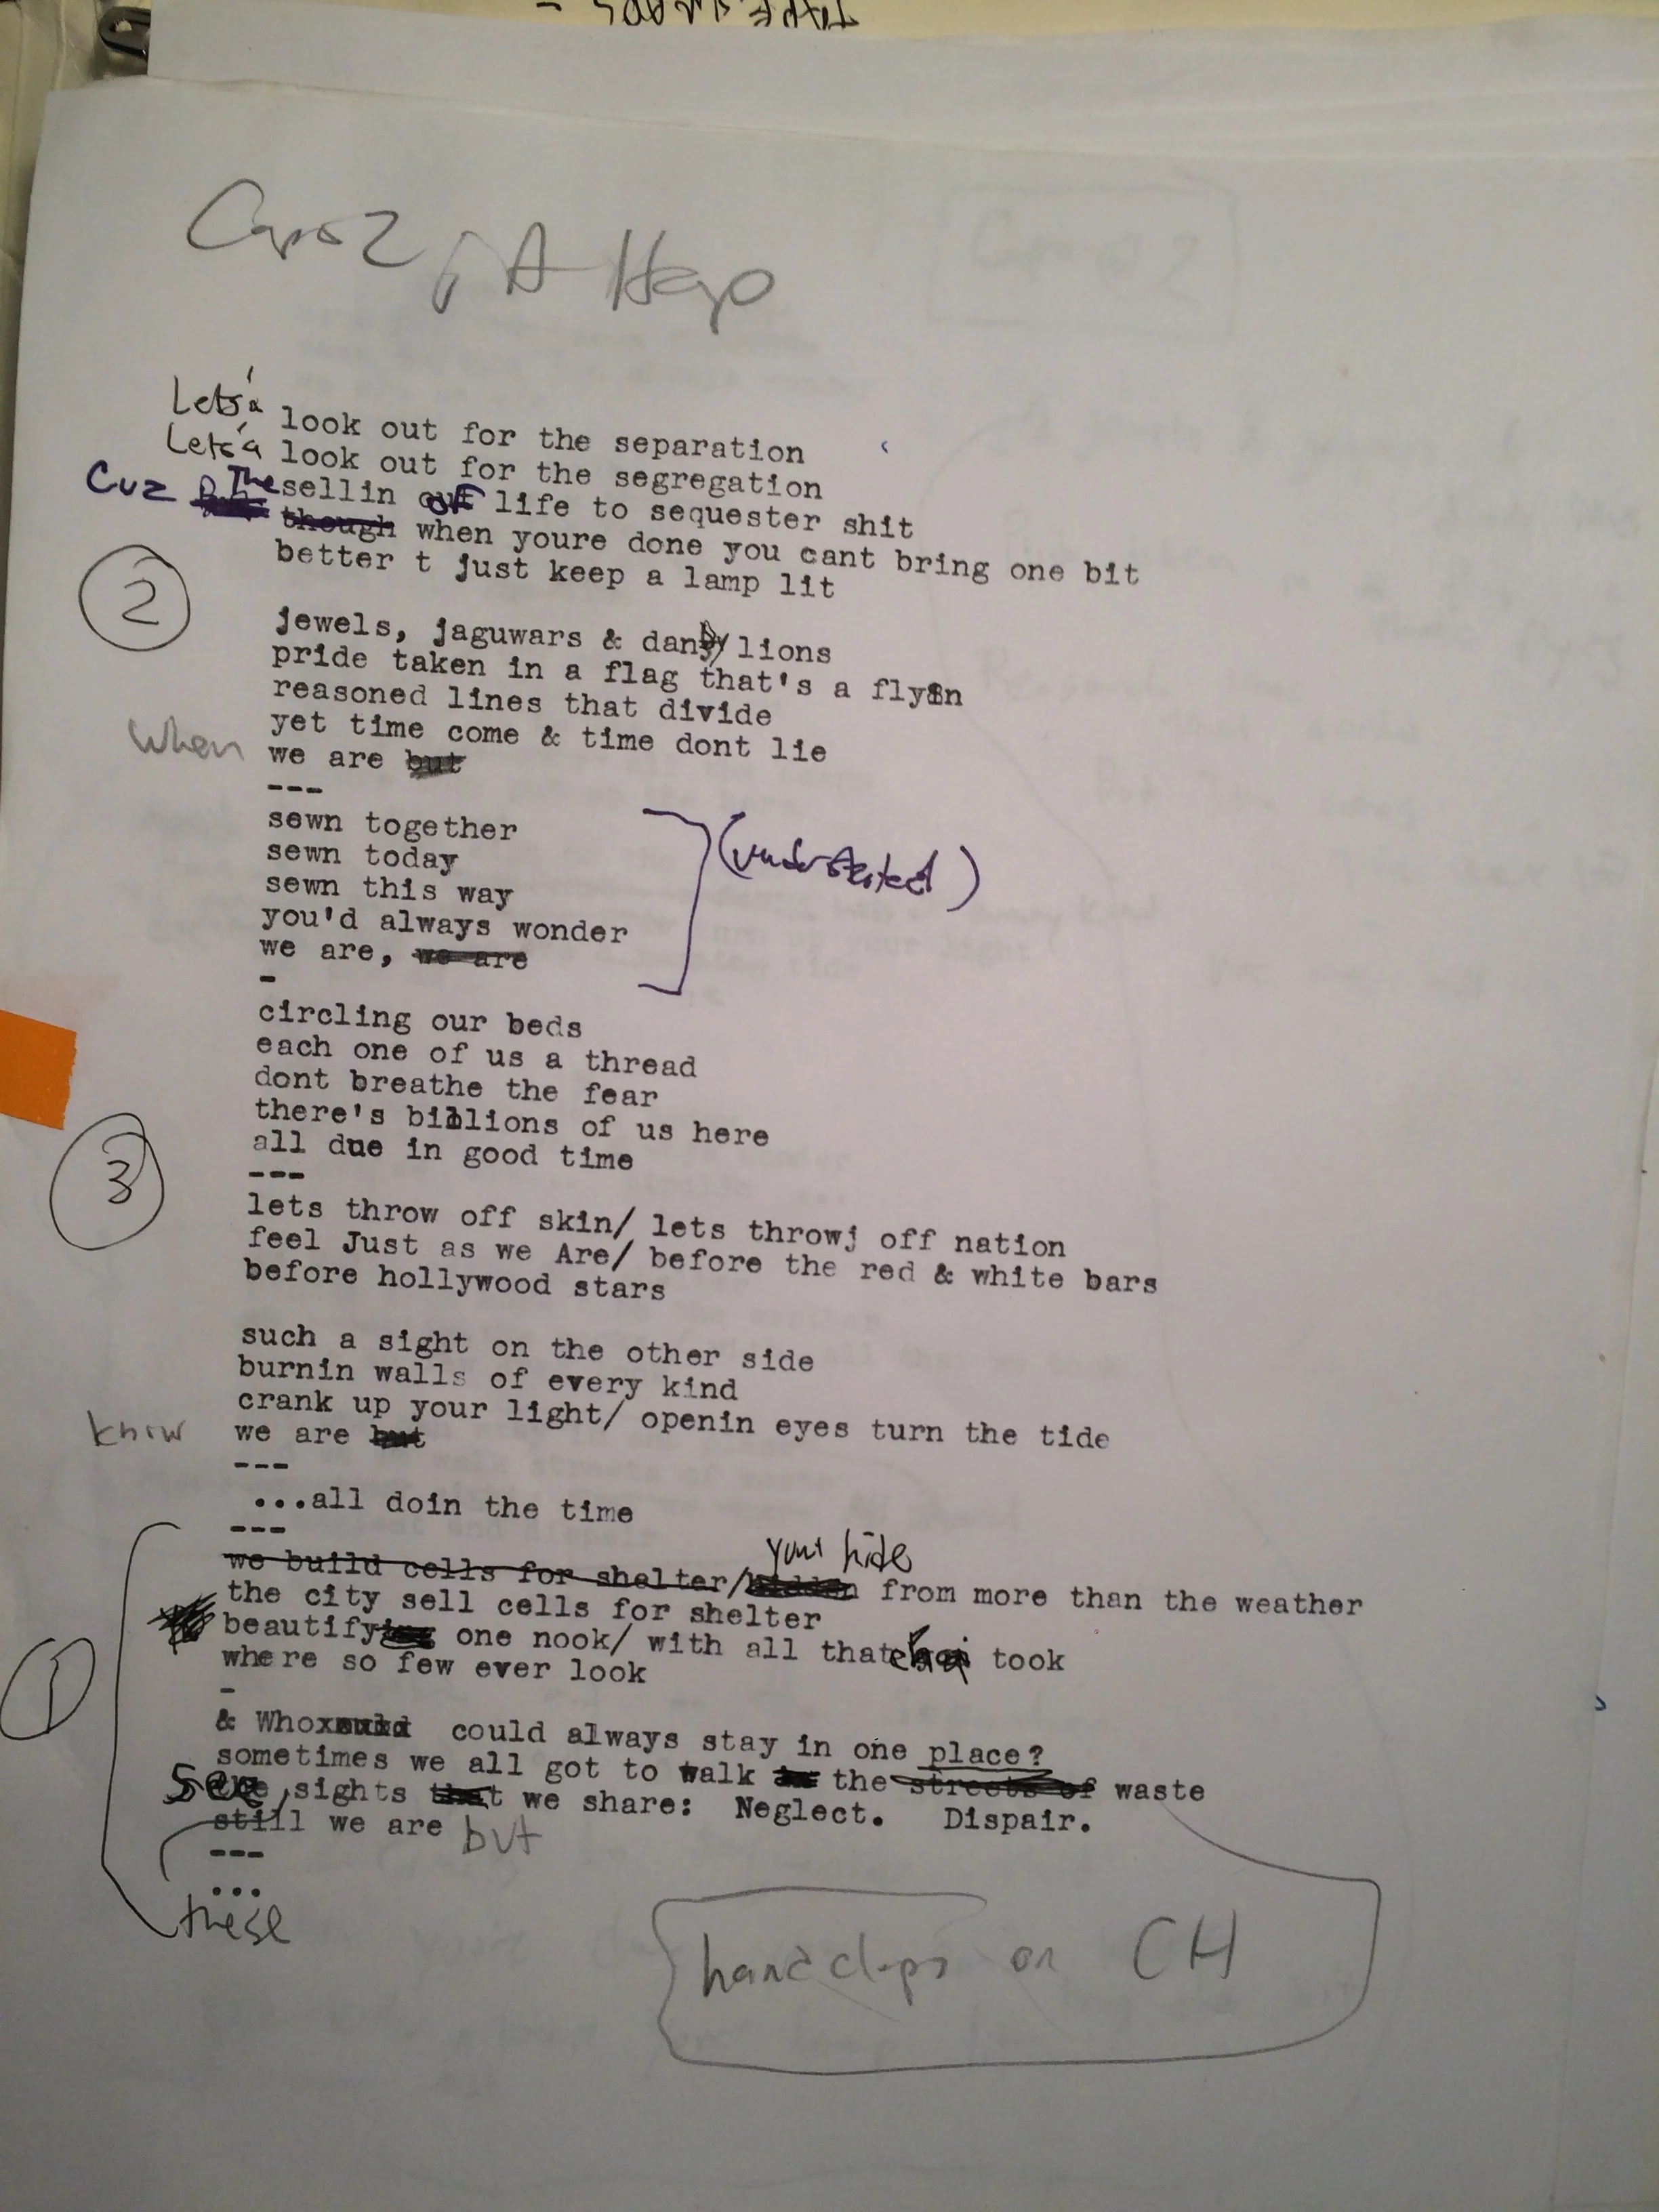 TAPE
Capo 2, A Harp
Lets'a look out for the separation
Lets'a look out for the segregation
Cuz The sellin of life to sequester shit
though when youre done you cant bring one bit
better t just keep a lamp lit
2
jewels, jaguwars & dandy/lions
pride taken in a flag that's a flyin
reasoned lines that divide
yet time come & time dont lie
when we are but
---
sewn together
sewn today
sewn this way
you'd always wonder
we are, we are
(understated)
-
circling our beds
each one of us a thread
dont breathe the fear
there's billions of us here
all due in good time
3
---
lets throw off skin/ lets throwj off nation
feel Just as we Are/ before the red & white bars
before hollywood stars
such a sight on the other side
burnin walls of every kind
crank up your light/ openin eyes turn the tide
know we are but
---
...all doin the time
---
your hide
we build cells for shelter/hidden from more than the weather
the city sell cells for shelter
beautify one nook/ with all that took
where so few ever look
1
-
& Who could always stay in one place?
sometimes we all got to walk the streets of waste
See sights that we share: Neglect. Dispair.
still we are but
---
...
these
handclaps on CH